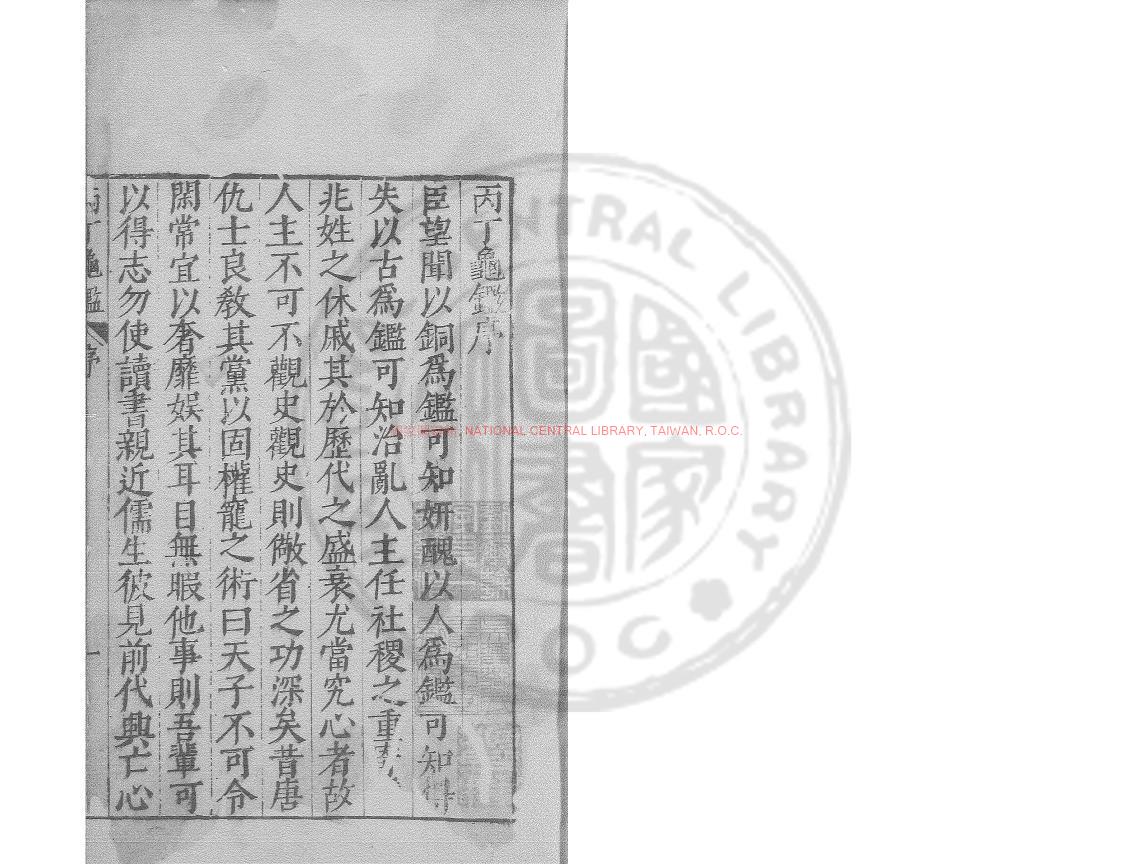 丙丁龜鑑序
臣望聞以銅爲鑑可知妍醜以人爲鑑可知得
失以古爲鑑可知治亂人主任社稷之重
兆姓之休戚其於歷代之盛衰尤當究心者故
人主不可不觀史觀史則儆省之功深矣昔唐
仇士良敎其黨以固權寵之術曰天子不可令
閑常宜以奢靡娛其耳目無暇他事則吾輩可
以得志勿使讀書親近儒生彼見前代興亡心
丙丁龜鑑 序 一
NATIONAL CENTRAL LIBRARY, TAIWAN, R.O.C.
CENTRAL LIBRARY
ROC
國家圖書館